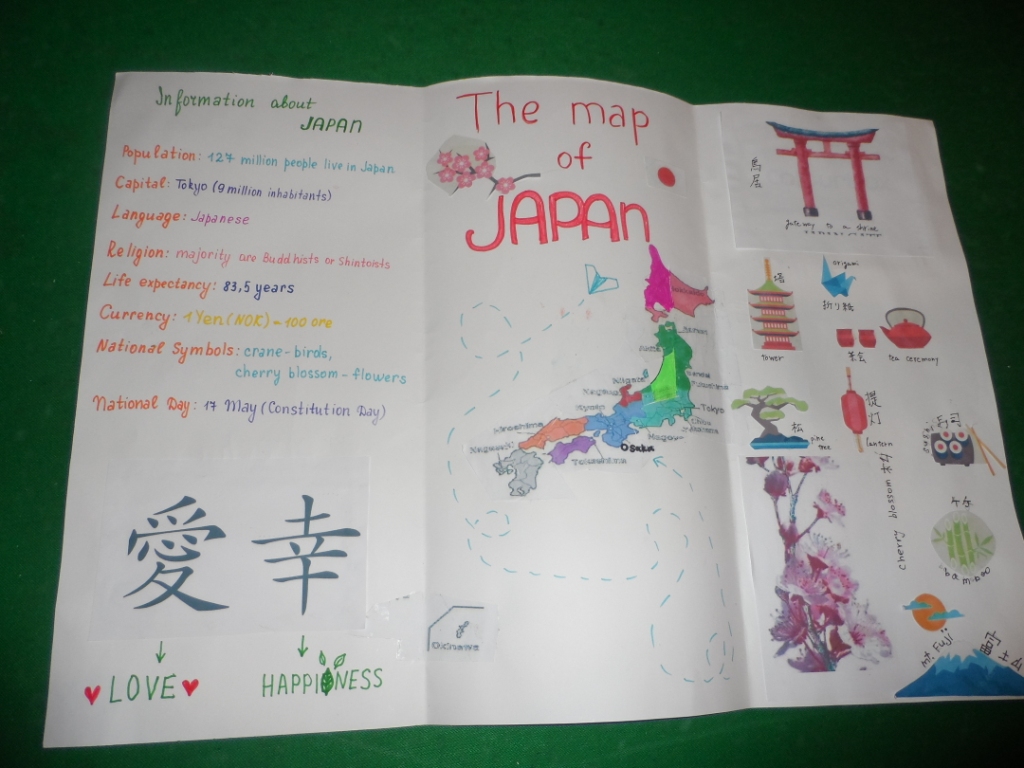 Information about
JAPAN
Population: 127 million people live in Japan
Capital: Tokyo (9 million inhabitants)
Language: Japanese
Religion: majority are Buddhists or Shintoists
Life expectancy: 83,5 years
Currency: 1 Yen (NOK) = 100 ore
National Symbols: crane-birds,
cherry blossom-flowers
National Day: 17 May (Constitution Day)
愛 幸
LOVE HAPPINESS
The map
of
JAPAN
Niigata
Tokyo
Nagoya
Hiroshima
Osaka
Nagasaki
Okinawa
鳥居
gateway to a shrine
塔
tower
origami
折り紙
tea ceremony
松
pine tree
提灯
lantern
cherry blossom
竹
bamboo
Mt Fuji